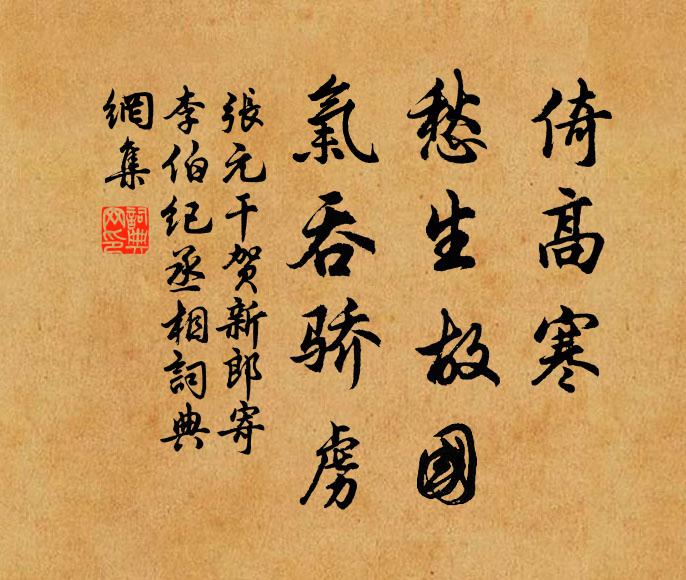 倚高寒
愁生故國
氣吞骄虏
張元干贺新郎寄
李伯纪丞相詞典
網集
詞典
网印